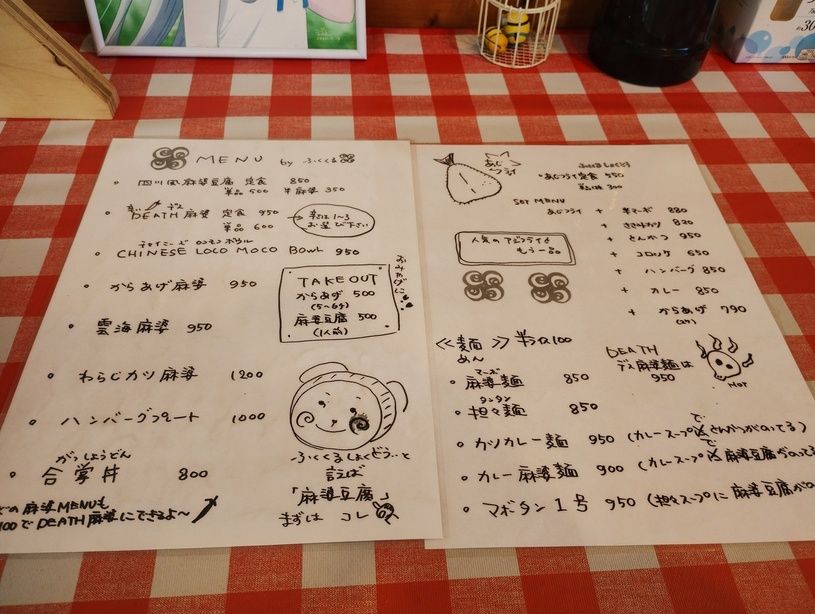 MENU by ふくくる
四川風麻婆豆腐 定食 850
単品 500 半麻婆 350
DEATH麻婆 定食 950
単品 600
辛さは1~3
お選び下さい
チャイニーズ ロコモコ ボウル
CHINESE LOCO MOCO BOWL 950
からあげ麻婆 950
雲海麻婆 950
わらじカツ麻婆 1200
ハンバーグプレート 1000
がっしょうどん
合掌丼 800
麻婆MENUも
100でDEATH麻婆にできるよ~
おみやげに
TAKE OUT
からあげ 500
(5~6ヶ)
麻婆豆腐 500
(1人前)
ふくくるしょくどう..と
言えば
「麻婆豆腐」
まずは コレ
あじ
フライ
あじフライ定食 950
単品 300
SET MENU
あじフライ + 半マーボ 880
+ ささみカツ 820
+ とんかつ 950
+ コロッケ 650
+ ハンバーグ 850
+ カレー 850
+ からあげ 790
人気のアジフライと
もう一品
<<麺>> 半玉100
めん
DEATH
デス麻婆麺は
950
HOT
マーボ
麻婆麺 850
タンタン
担々麺 850
カツカレー麺 950 (カレースープでとんかつがのってる)
カレー麻婆麺 900 (カレースープで麻婆豆腐がのってる
マボタン1号 950 (担々スープに麻婆豆腐がの